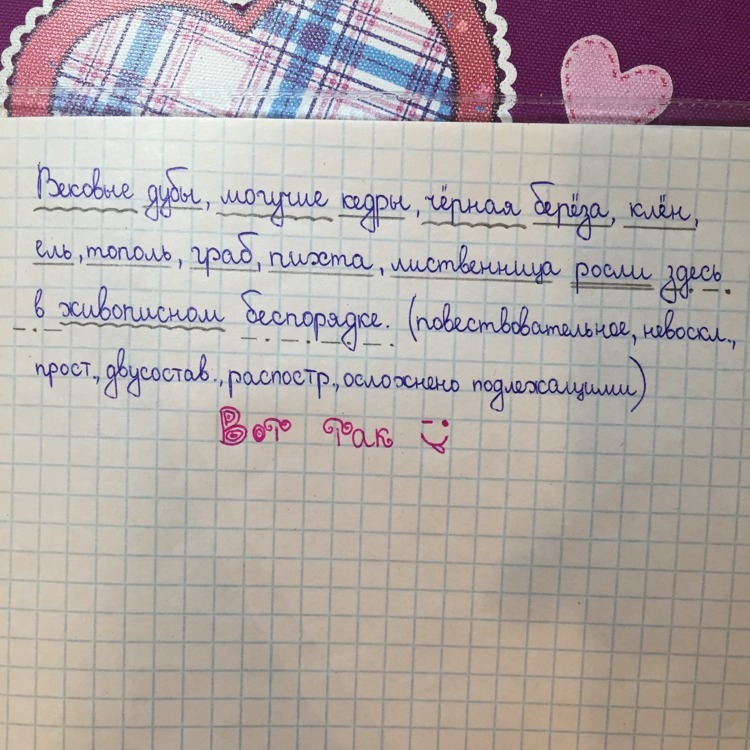 Вековые дубы, могучие кедры, чёрная берёза, клён,
ель, тополь, граб, пихта, лиственница росли здесь
в живописном беспорядке. (повествовательное, невоскл.,
прост., двусостав., распостр., осложнено подлежащими)
Вот так